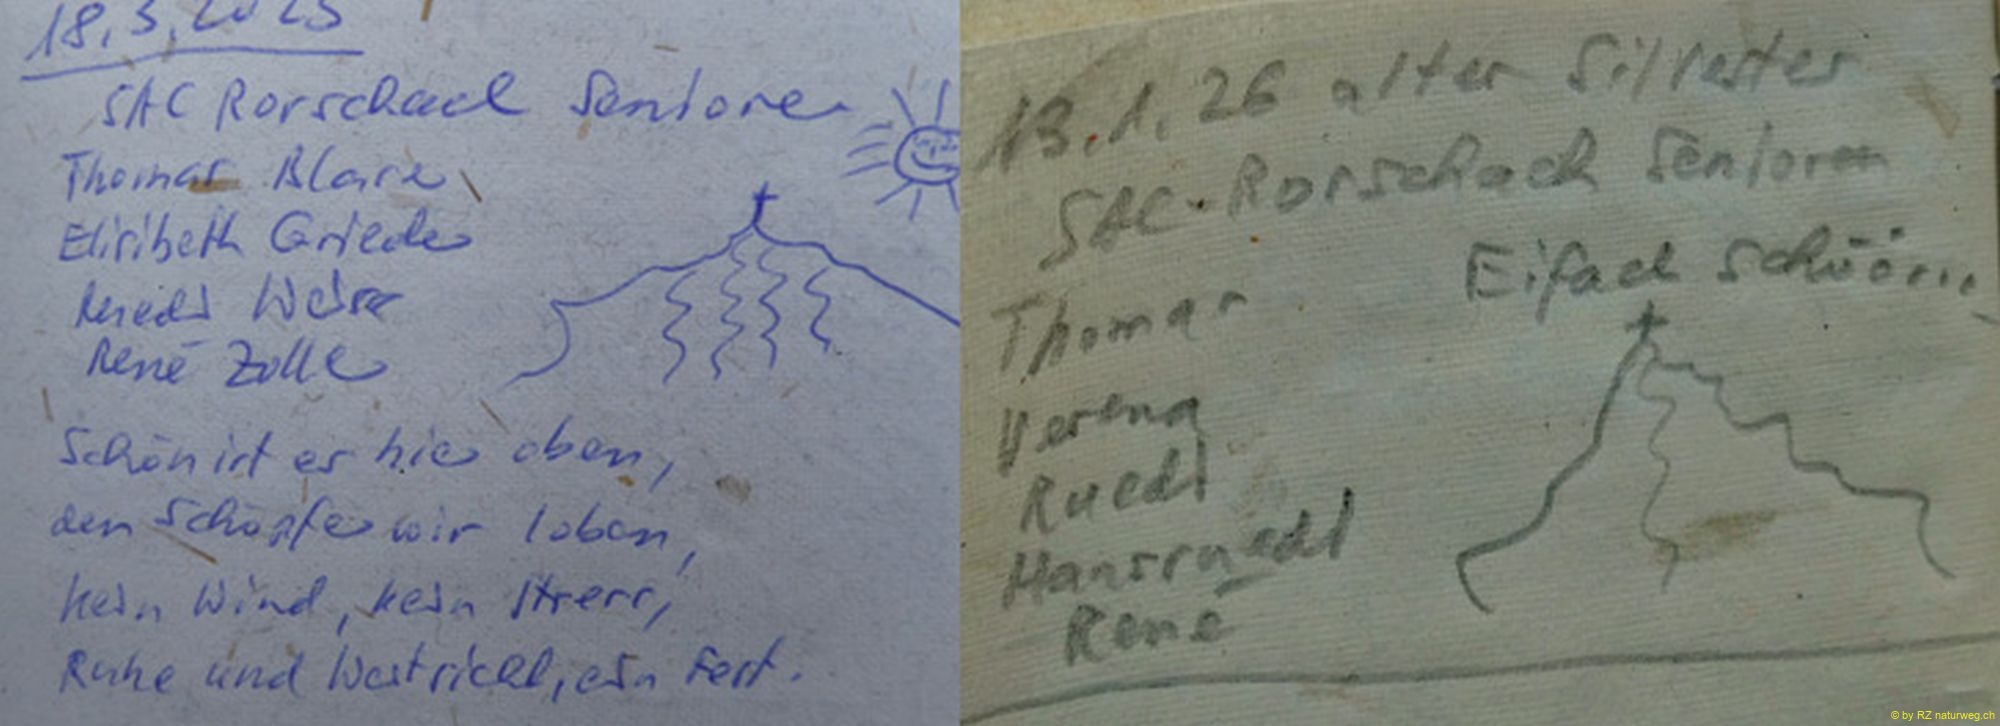 18.3.2025
SAC Rorschach Senioren
Thomas
Elisabeth
René Zolle
Schön ist es hier oben,
den Schöpfer wir loben,
kein Wind, kein Stress,
Ruhe und Weitsicht, ein Fest.
13.1.26 alter Silvester
SAC-Rorschach Senioren
Eifach schöön...
Thomas
Verena
Ruedi
Hansruedi
René
© by RZ naturweg.ch